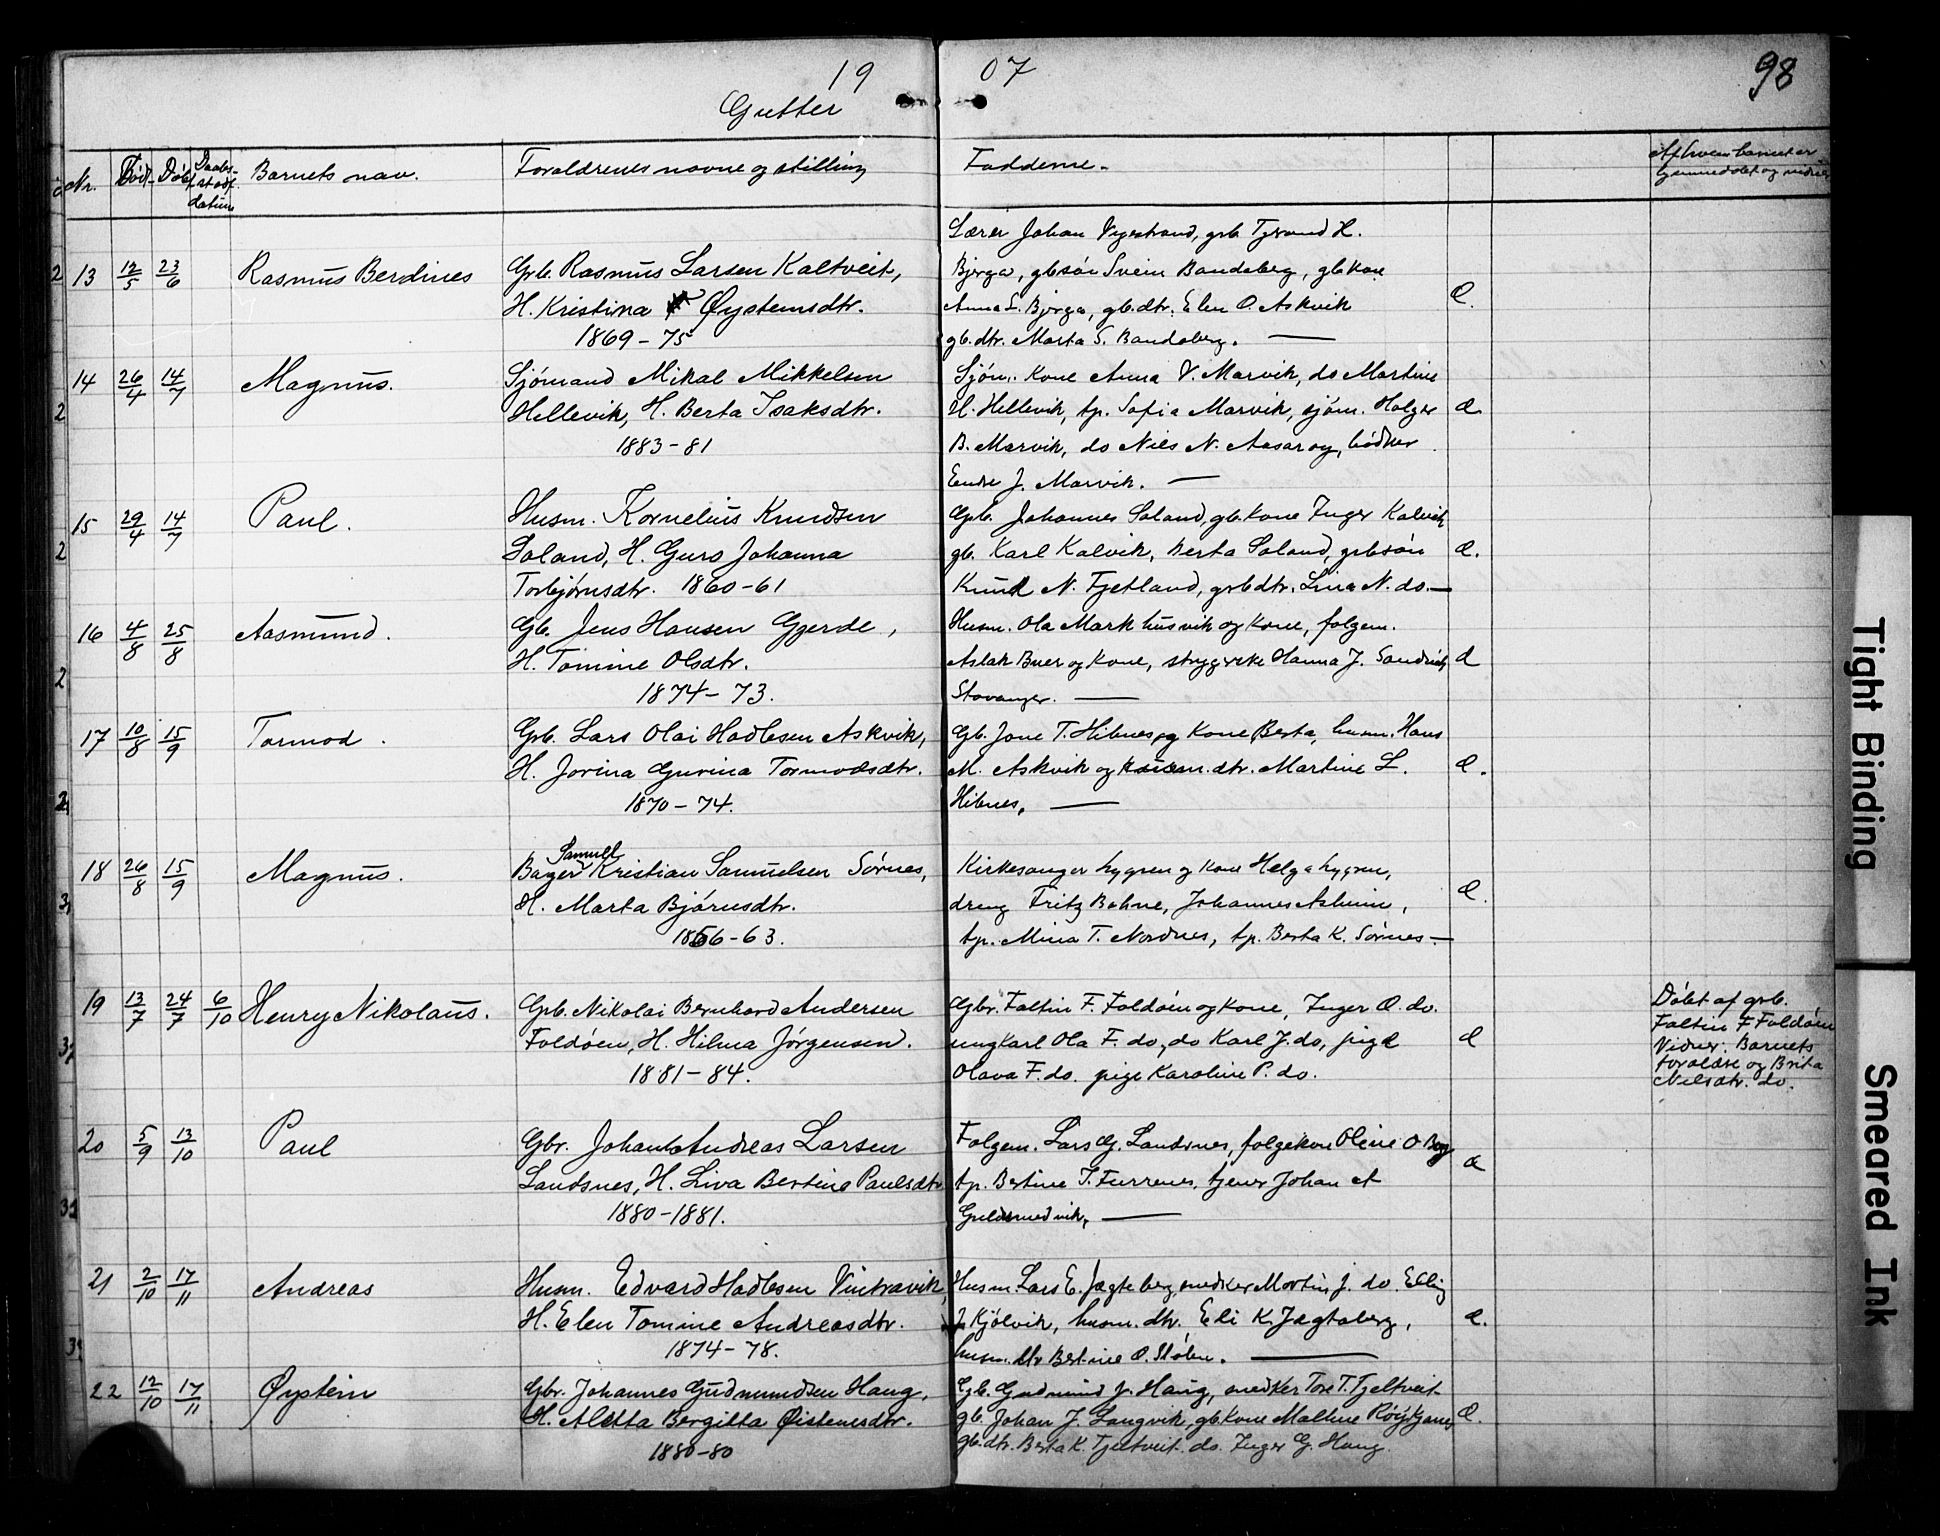 19 07 98
Gutter
Nr. Född. Döbt Daabs-stadf. datum Barnets navn. Forældrenes navne og stilling Fadderne. Af hvem barnet er hjemmedöbt og vidner
Lærer Johan Vigestrand, grb. Tjerand H.
13 12/5 23/6 Rasmus Berdines Grb. Rasmus Larsen Kaltveit, Bjerga, gbsön Svein Bandaberg, gb.kone
H. Kristina Øysteinsdtr. Anna S. Bjerga, gb.dtr. Elen O. Askvik Æ.
1869 - 75 gb.dtr. Marta S. Bandaberg. —
14 26/4 14/7 Magnus. Sjömand Mikal Mikkelsen Sjöm. kone Anna V. Marvik, do Martine
Hellevik, H. Berta Isaksdtr. H. Hellevik, tp. Sofia Marvik, sjöm. Holger Æ
1883 - 81 B. Marvik, do Niels N. Aasarog, bödker
Endre J. Marvik. —
15 29/4 14/7 Paul. Husm. Kornelius Knudsen Grb. Johannes Saland, gb.kone Inger Kalvik,
Saland, H. Guro Johanna gb. Karl Kalvik, Berta Saland, grbsön Æ.
Torbjörnsdtr. 1860-61 Knud N. Tjetland, grbdtr. Lina N. do. —
16 4/8 25/8 Aasmund. Gb. Jens Hansen Gjerde, Husm. Ola Markhusvik og kone, folgem.
H. Tomine Olsdtr. Aslak Buer og kone, strygerske Hanna J. Sandvik, Æ
1874 - 73. Stavanger. —
17 10/8 15/9 Tormod. Grb. Lars Olai Hadlesen Askvik, Gb. Jone T. Hibnes og kone Berta, husm. Hans
H. Jorina Gurina Tormodsdtr. M. Askvik og husm. dtr. Martine L. Æ.
1870 - 74. Hibnes, —
18 26/8 15/9 Magnus. Bager Samuel Kristian Samuelsen Sörnes, Kirkesanger Nygren og kone Helga Nygren,
H. Marta Björnsdtr. dreng Fritz Bahne, Johannes Asheim, Æ.
1866 - 63. tp. Mina T. Nordnes, tp. Berta K. Sörnes —
19 13/7 24/7 6/10 Henry Nikolaus. Grb. Nikolai Bernhard Andersen Gbr. Faltin F. Foldöen og kone, Inger O. do. Döbt af grb.
Foldöen, H. Hilma Jörgensen. ungkarl Ola F. do, do Karl J. do, pige Æ Faltin F Foldöen
1881 - 84. Olava F. do. pige Karoline P. do. Vidner: Barnets
forældre og Brita
Nilsdtr. do.
20 5/9 13/10 Paul Gbr. Johan Andreas Larsen Folgem. Lars G. Landsnes, folgekone Oline O Berg
Landsnes, H. Liva Bertine Paulsdtr. tp. Bertine T. Furrenes, tjener Johan A Æ
1880 - 1881. Guldsmedvik, —
21 2/10 17/11 Andreas Husm. Edvard Hadlesen Vintravik, Husm. Lars E. Jægteberg, snedker Martin J. do. Elling
H. Elen Tomine Andreasdtr. J. Kjölvik, husm. dtr. Eli K. Jægtaberg, Æ.
1874 - 78. husm. dtr Bertine O. Stölen. —
22 12/10 17/11 Øystein Gbr. Johannes Gudmundsen Haug, Gb. Gudmund J. Haug, snedker Tore T. Tjeltveit
H. Aletta Bergitta Øistensdtr. gb. Johan J. Langvik, gb.kone Maltine Æ.
1880 - 80 gb.dtr. Berta K. Tjeltveit. do. Inger G. Haug.
Tight Binding
Smeared Ink